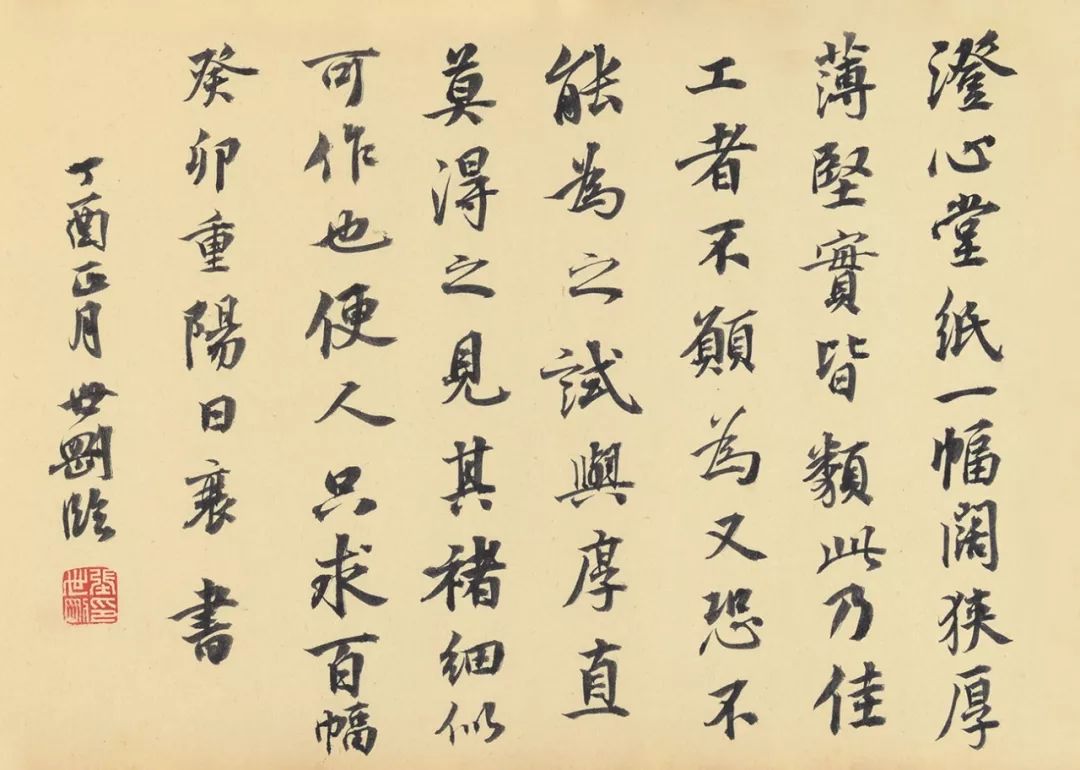 澄心堂紙一幅闊狹厚
薄堅實皆類此乃佳
工者不願為又恐不
能為之試與厚直
莫得之見其楮細似
可作也便人只求百幅
癸卯重陽日襄書
丁酉正月世剛臨
張世剛印